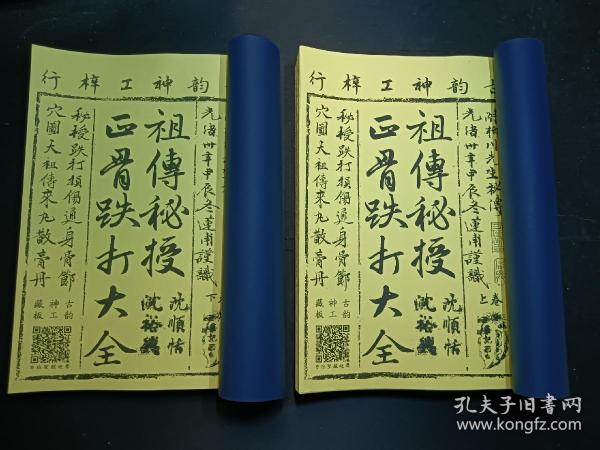 行梓工神韵
光緒卅年甲辰冬蓮甫謹識
祖傳秘授
正骨跌打大全
秘授跌打損傷通身骨節
穴圖大祖傳來九散膏丹
下
沈順恬
古韵
神工
藏板
行梓工神韵古
先生秘傳
光緒卅年甲辰冬蓮甫謹識
卷上
祖傳秘授
正骨跌打大全
秘授跌打損傷通身骨節
穴圖大祖傳來九散膏丹
沈順恬
古韵
神工
藏板
孔夫子旧书网
www.kongfz.com